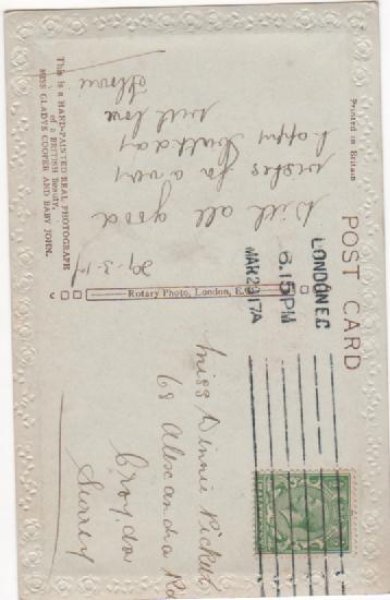 POST CARD
Printed in Britain
This is a HAND-PAINTED REAL PHOTOGRAPH
of a BRITISH Beauty.
MISS GLADYS COOPER AND BABY JOHN.
Rotary Photo, London, E.C.
LONDON E.C
6.15PM
MAR 29 17A
29.3.17
With all good
wishes for a very
happy birthday
with love
Miss
68 Alexandra Rd
Croydon
Surrey